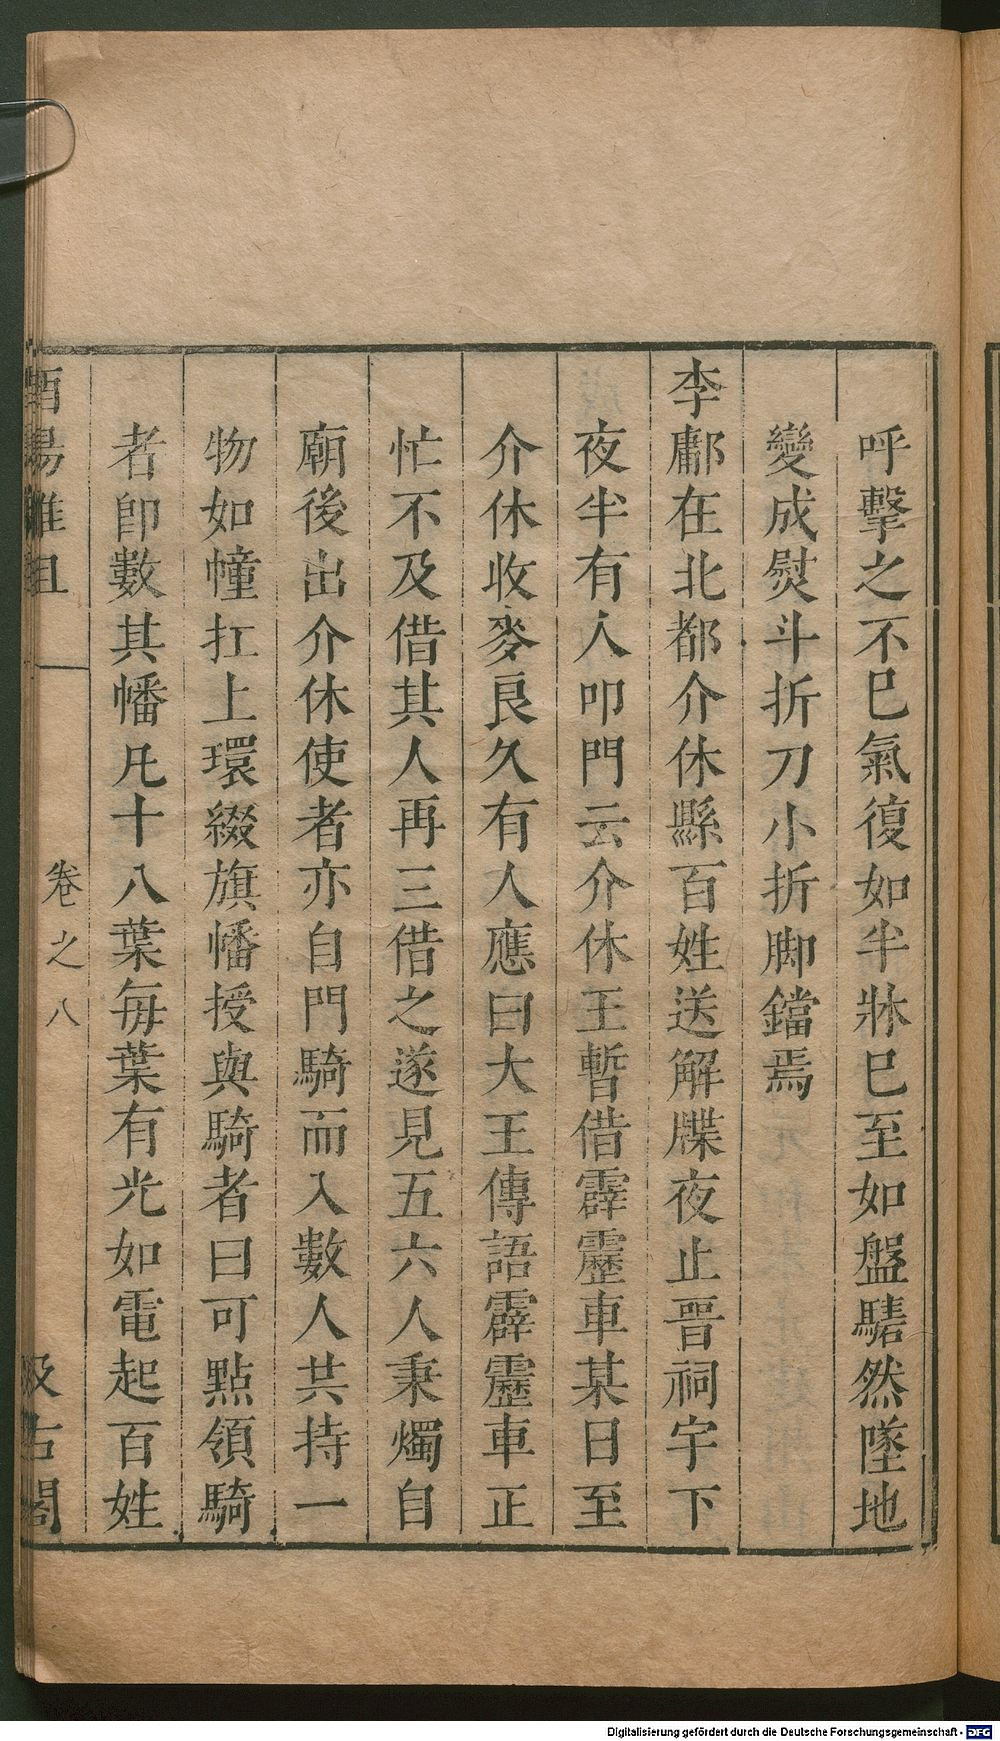 呼擊之不巳氣復如半牀巳至如盤騞然墜地
變成熨斗折刀小折脚鐺焉
李鄘在北都介休縣百姓送解牒夜止晉祠宇下
夜半有人叩門云介休王暫借霹靂車某日至
介休收麥良久有人應曰大王傳語霹靂車正
忙不及借其人再三借之遂見五六人秉燭自
廟後出介休使者亦自門騎而入數人共持一
物如幢扛上環綴旗幡授與騎者曰可點領騎
者卽數其幡凡十八葉每葉有光如電起百姓
酉陽雜俎
卷之八
汲古閣
Digitalisierung gefördert durch die Deutsche Forschungsgemeinschaft - DFG